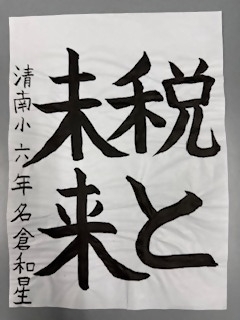 税と
未来
清南小六年名倉和星